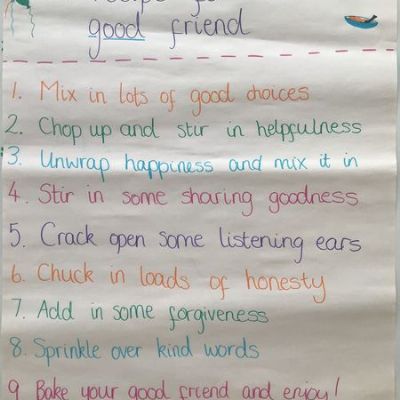 good friend
1. Mix in lots of good choices
2. Chop up and stir in helpfulness
3. Unwrap happiness and mix it in
4. Stir in some sharing goodness
5. Crack open some listening ears
6. Chuck in loads of honesty
7. Add in some forgiveness
8. Sprinkle over kind words
9 Bake your good friend and enjoy!